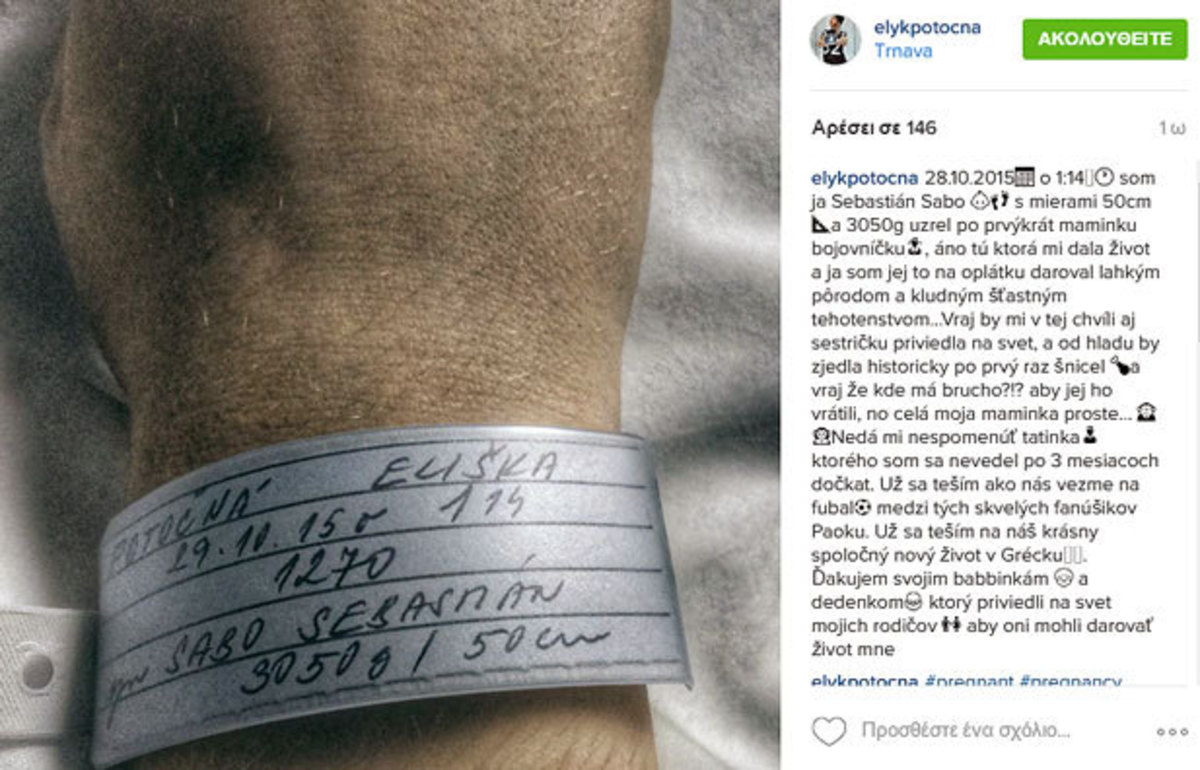 POTOČNÁ ELIŠKA
29.10.15 o 114
1270
SABO SEBASTIÁN
3050g / 50cm
elykpotocna
Trnava
ΑΚΟΛΟΥΘΕΙΤΕ
Αρέσει σε 146
1 ω
elykpotocna 28.10.2015 o 1:14 som
ja Sebastián Sabo s mierami 50cm
a 3050g uzrel po prvýkrát maminku
bojovníčku, áno tú ktorá mi dala život
a ja som jej to na oplátku daroval lahkým
pôrodom a kludným šťastným
tehotenstvom...Vraj by mi v tej chvíli aj
sestričku priviedla na svet, a od hladu by
zjedla historicky po prvý raz šnicel a
vraj že kde má brucho?!? aby jej ho
vrátili, no celá moja maminka proste...
Nedá mi nespomenúť tatinka
ktorého som sa nevedel po 3 mesiacoch
dočkat. Už sa teším ako nás vezme na
fubal medzi tých skvelých fanúšikov
Paoku. Už sa teším na náš krásny
spoločný nový život v Grécku.
Ďakujem svojim babbinkám a
dedenkom ktorý priviedli na svet
mojich rodičov aby oni mohli darovať
život mne
elykpotocna #pregnant #pregnancy
Προσθέστε ένα σχόλιο...